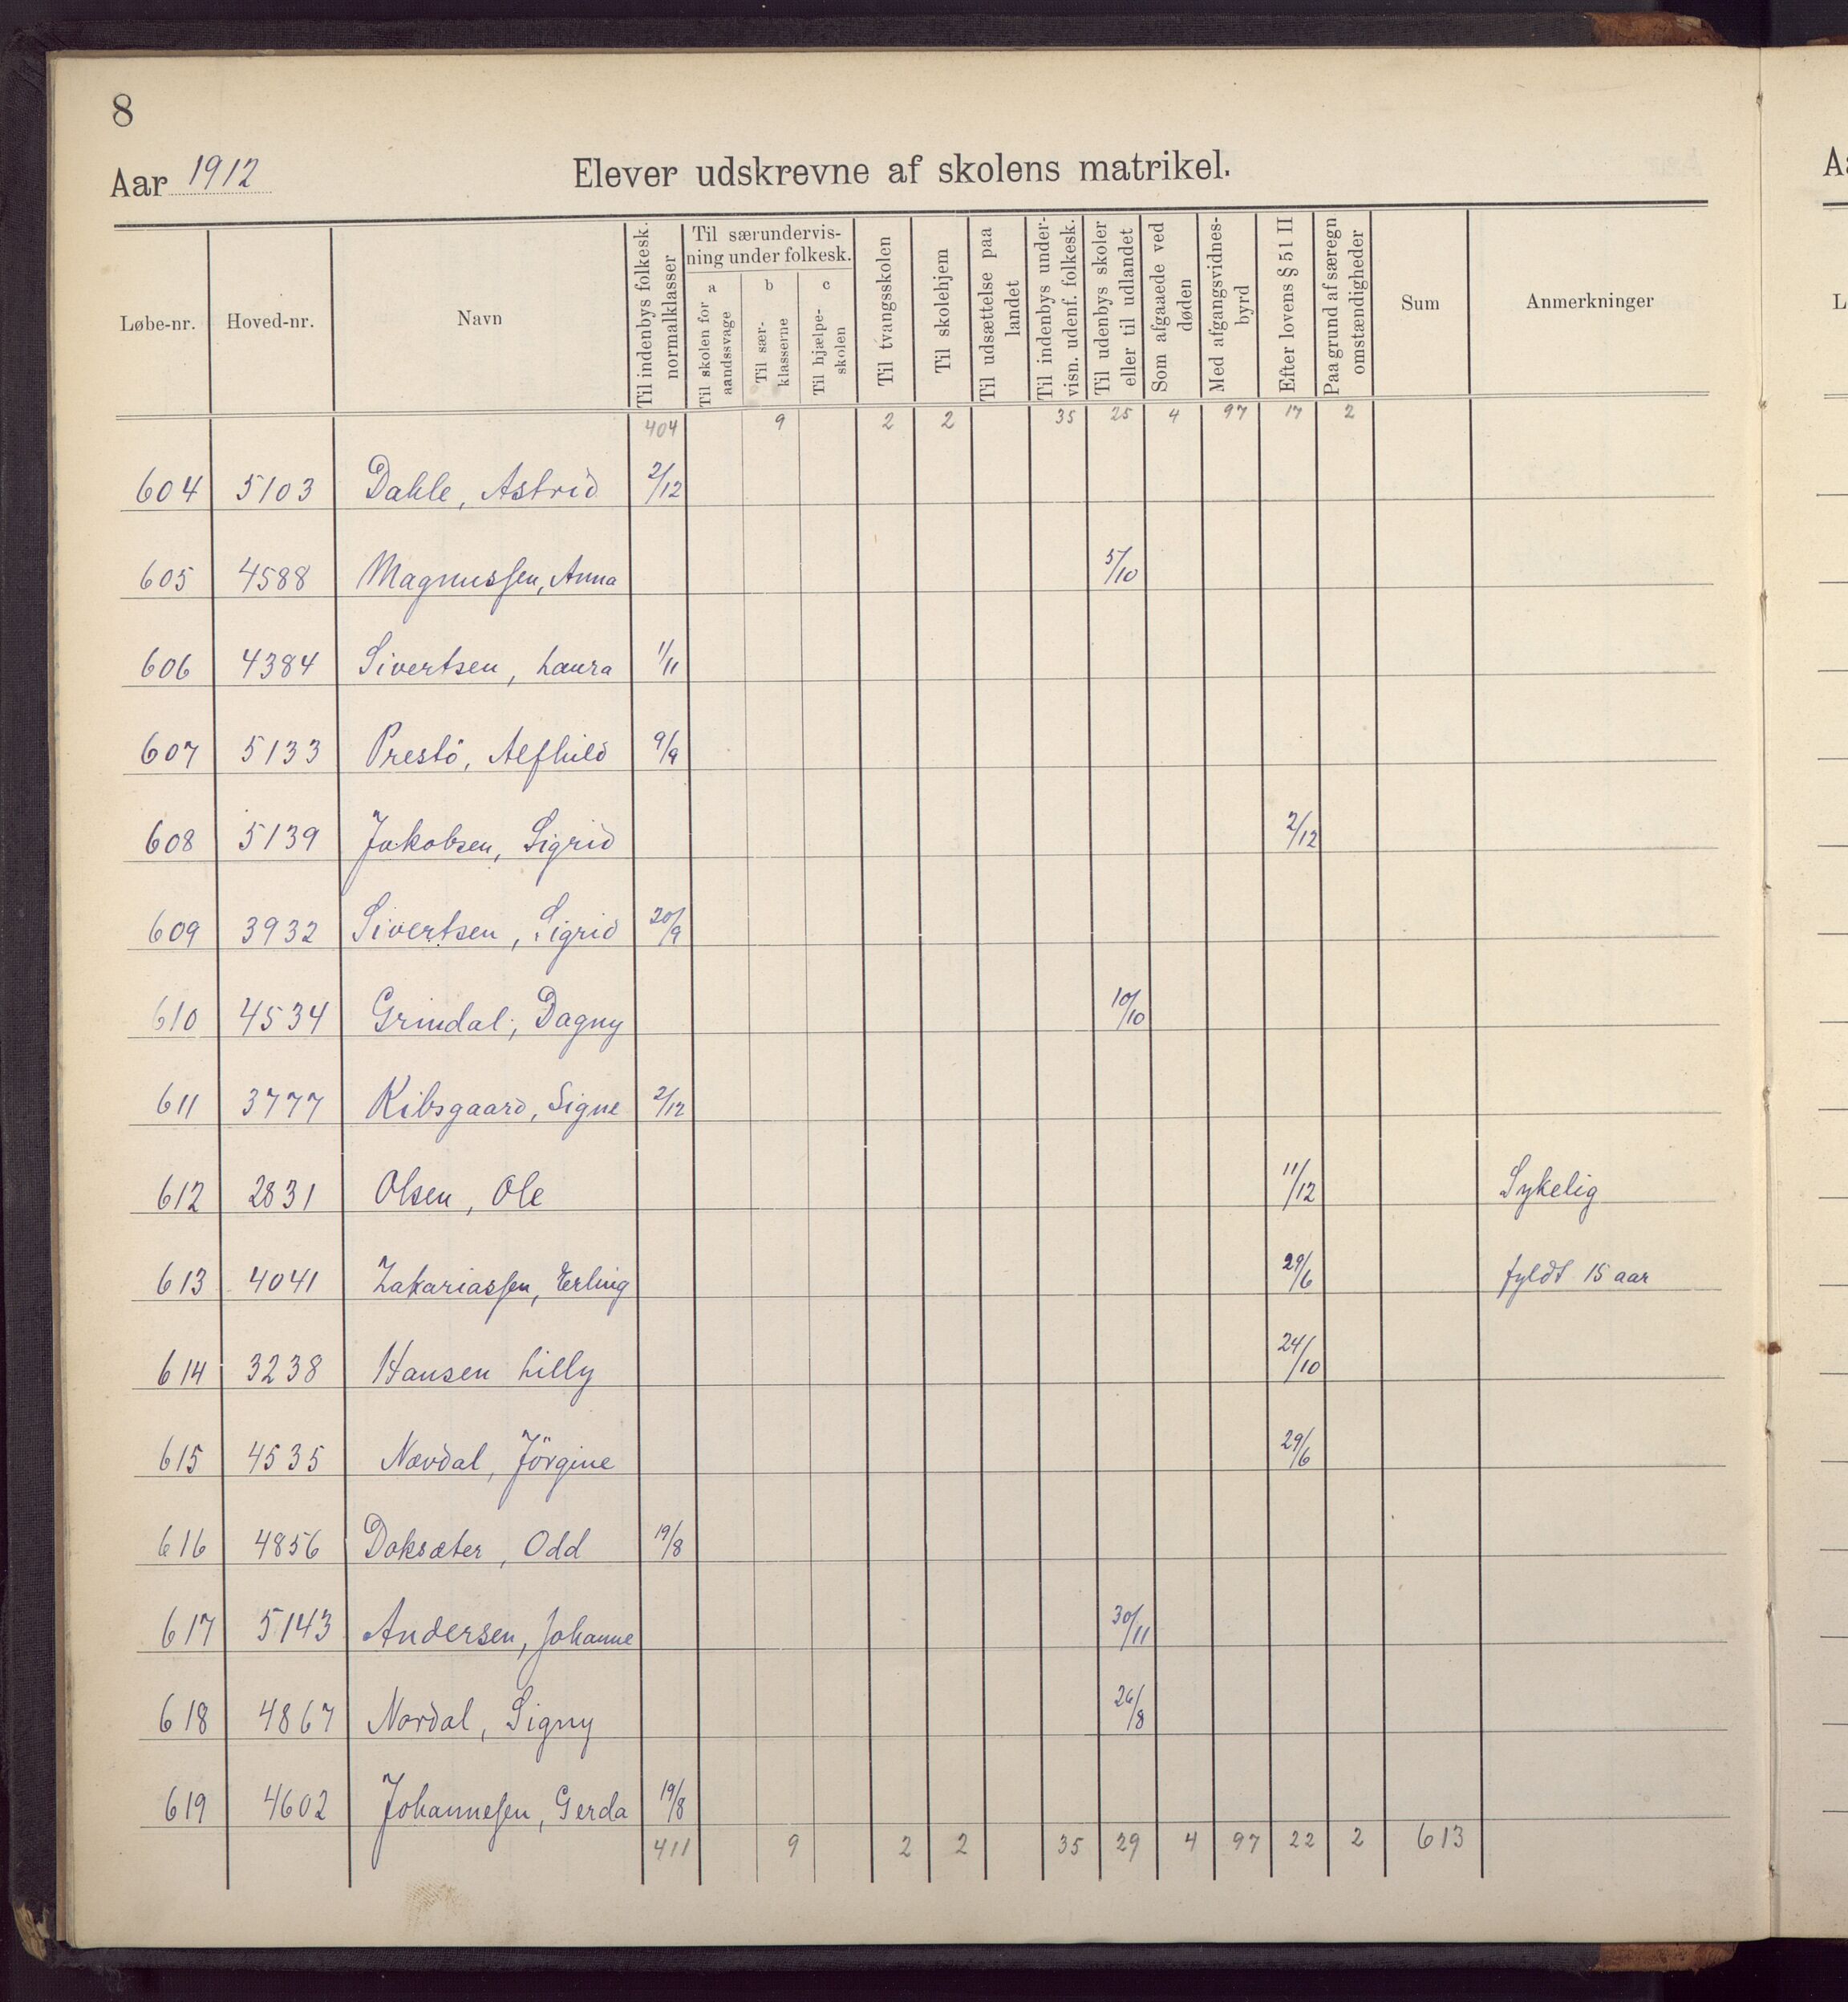 8
Aar 1912 Elever udskrevne af skolens matrikel.
Løbe-nr. Hoved-nr. Navn Til indenbys folkesk. normalklasser Til særundervisning under folkesk. a Til skolen for aandssvage b Til særklasserne c Til hjælpeskolen Til tvangsskolen Til skolehjem Til udsættelse paa landet Til indenbys undervisn. udenf. folkesk. Til udenbys skoler eller til udlandet Som afgaaede ved døden Med afgangsvidnesbyrd Efter lovens § 51 II Paa grund af særegne omstændigheder Sum Anmerkninger
404 9 2 2 35 25 4 97 17 2
604 5103 Dahle, Astrid 2/12
605 4588 Magnussen, Anna 5/10
606 4384 Sivertsen, Laura 1/11
607 5133 Prestö, Alfhild 9/9
608 5139 Jakobsen, Sigrid 2/12
609 3932 Sivertsen, Sigrid 20/9
610 4534 Grindal, Dagny 10/10
611 3777 Kibsgaard, Signe 2/12
612 2831 Olsen, Ole 11/12 Sykelig
613 4041 Zakariassen, Erling 29/6 fyldt 15 aar
614 3238 Hansen Lilly 24/10
615 4535 Nævdal, Jörgine 29/6
616 4856 Doksæter, Odd 19/8
617 5143 Andersen, Johanne 30/11
618 4867 Nordal, Signy 26/8
619 4602 Johannesen, Gerda 19/8
411 9 2 2 35 29 4 97 22 2 613